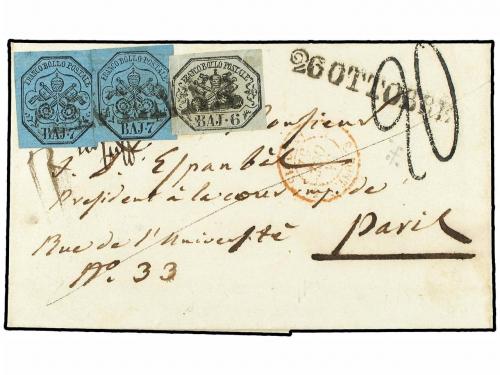 FRANCO BOLLO POSTALE
BAJ·7
FRANCO BOLLO POSTALE
BAJ·7
FRANCO BOLLO POSTALE
BAJ·6
26 OTTOBRE
20
Monsieur
Espanbèt
President à la cour imp. de
Rue de l'Université
Paris
Nº. 33